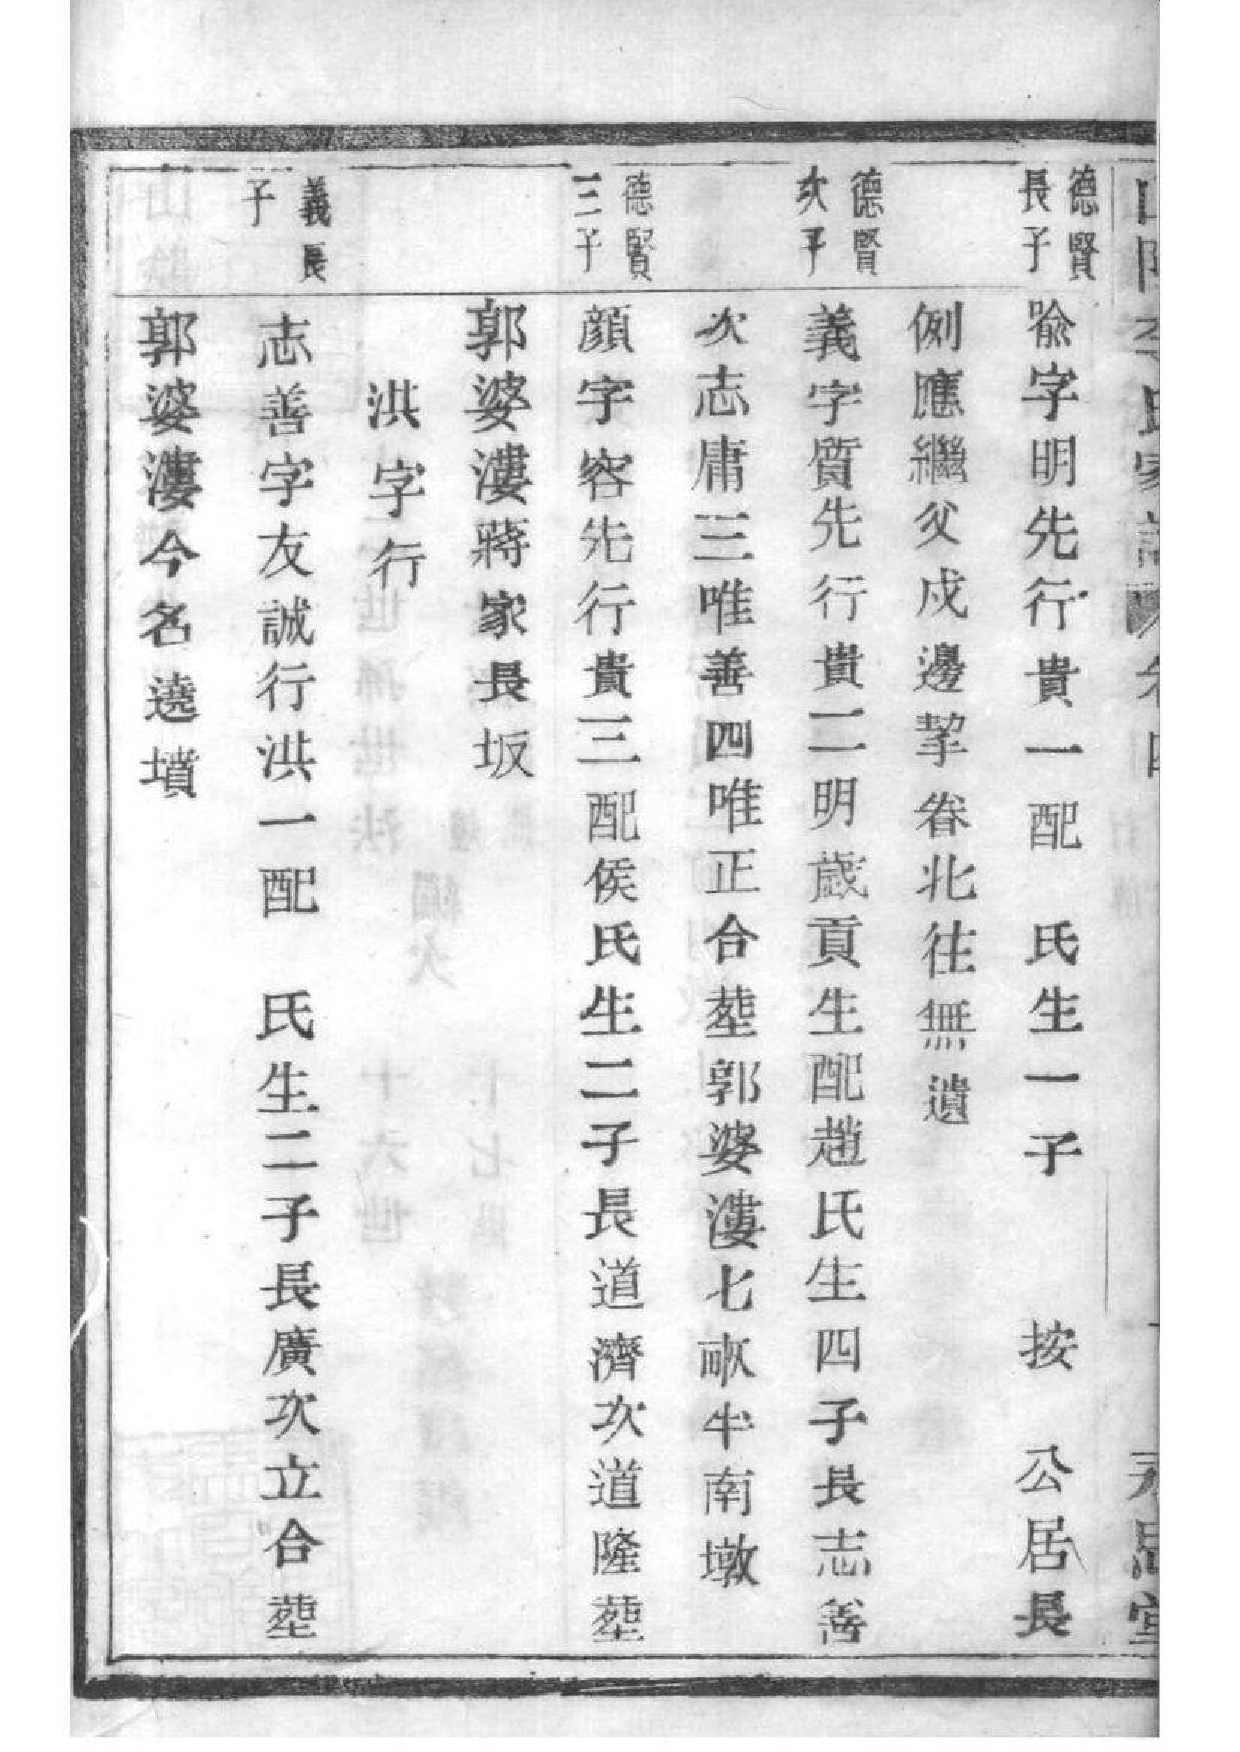 山陰李氏家譜 卷四 永思堂
德賢長子
喩字明先行貴一配 氏生一子 按 公居長
例應繼父戍邊挈眷北往無遺
德賢次子
義字質先行貴二明歲貢生配趙氏生四子長志善
次志庸三唯善四唯正合塟郭婆漊七畝半南墩
德賢三子
顔字容先行貴三配侯氏生二子長道濟次道隆塟
郭婆漊蔣家長坂
洪字行
義長子
志善字友誠行洪一配 氏生二子長廣次立合塟
郭婆漊今名遶墳